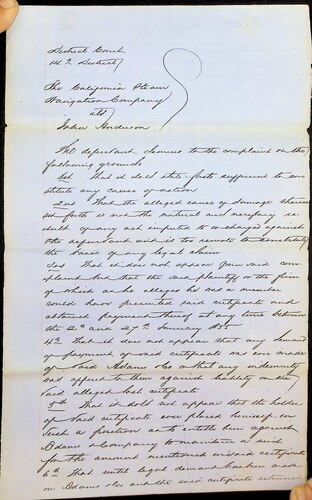 District Court
14th District
The California Steam
Navigation Company
ats
John Anderson
The defendant demurs to the complaint on the
following grounds
1st That it does not state facts sufficient to con
stitute any cause of action
2nd That the alleged cause of damage therein
set forth is not the natural and necessary re-
sult of any act imputed to or charged against
the defendant and is too remote to constitute
the basis of any legal claim
3rd That it does not appear from said com
plaint but that the said plaintiff or the firm
of which as he alleges he was a member
could have presented said certificate and
obtained payment thereof at any time between
the 2nd and 27th January 1855
4th That it does not appear that any demand
of payment of said certificate was ever made
of said Adams & Co or that any indemnity
was offered to them against liability on the
said alleged lost certificate
5th That it does not appear that the holder
of said certificate ever placed himself in
such a position as to entitle him against
Adams & Company to maintain a suit
for the amount mentioned in said certificate
6th That until legal demand has been made
on Adams & Co and the said certificate returned